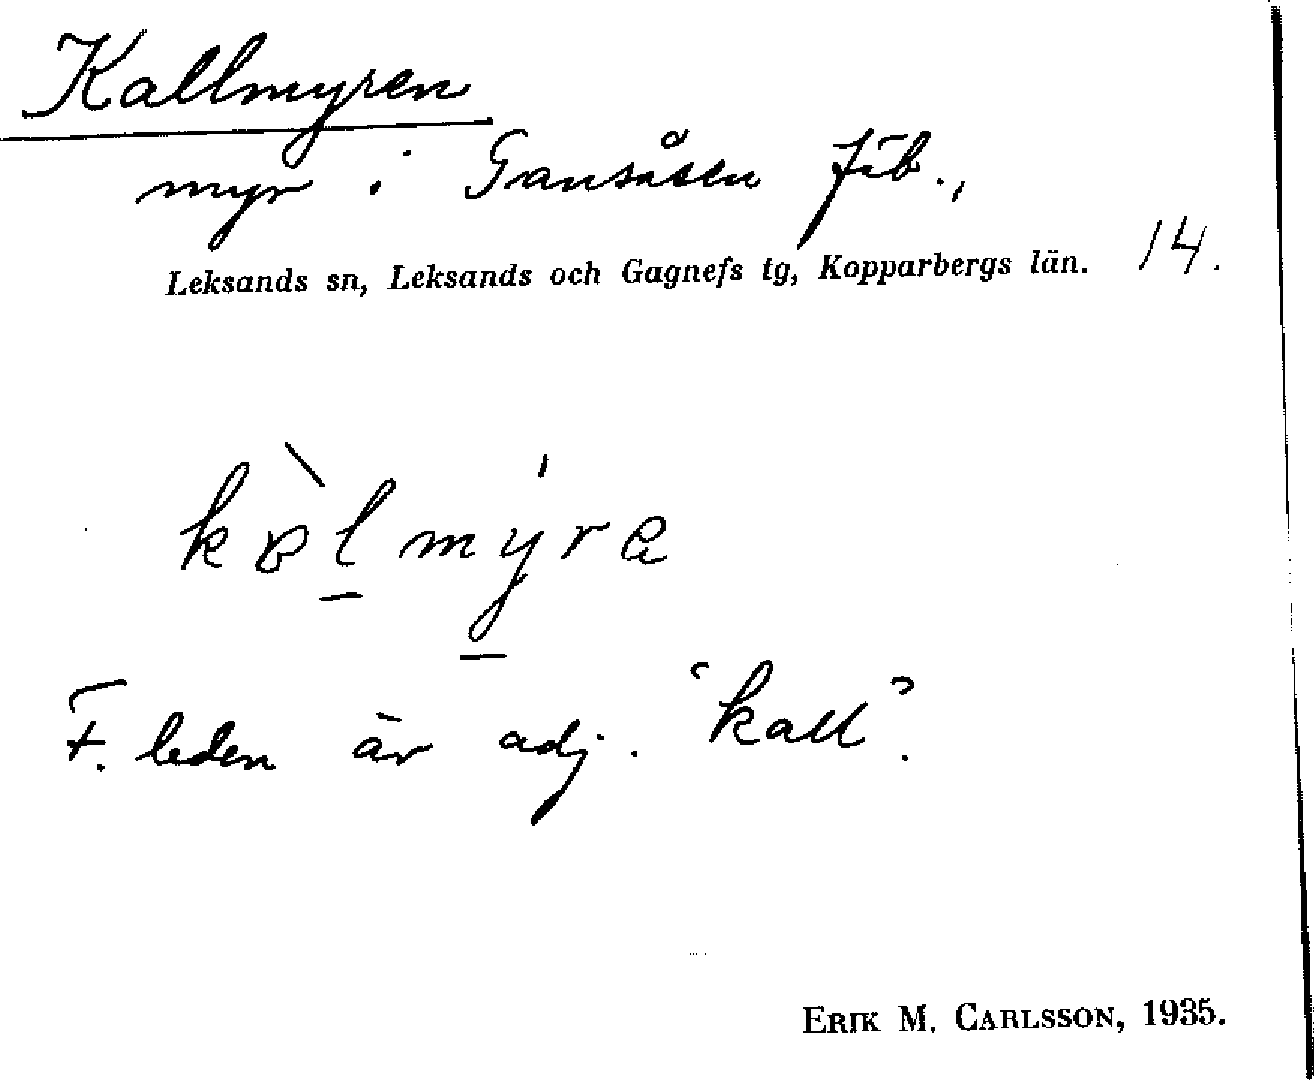 Kallmyren
myr i Gansåsen fäb.,
Leksands sn, Leksands och Gagnefs tg, Kopparbergs län. 14.
F. leden är adj. "kall".
ERIK M. CARLSSON, 1935.